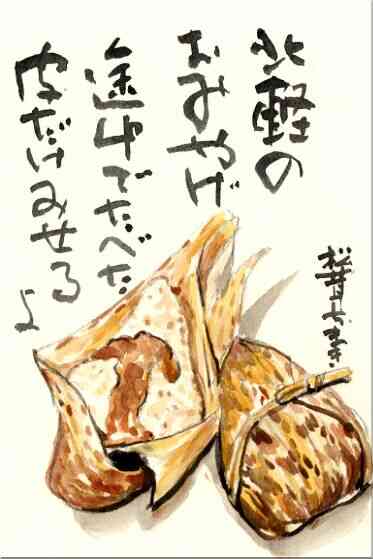 北軽の
おみやげ
途中でたべた
皮だけみせる
よ
松茸ちまき